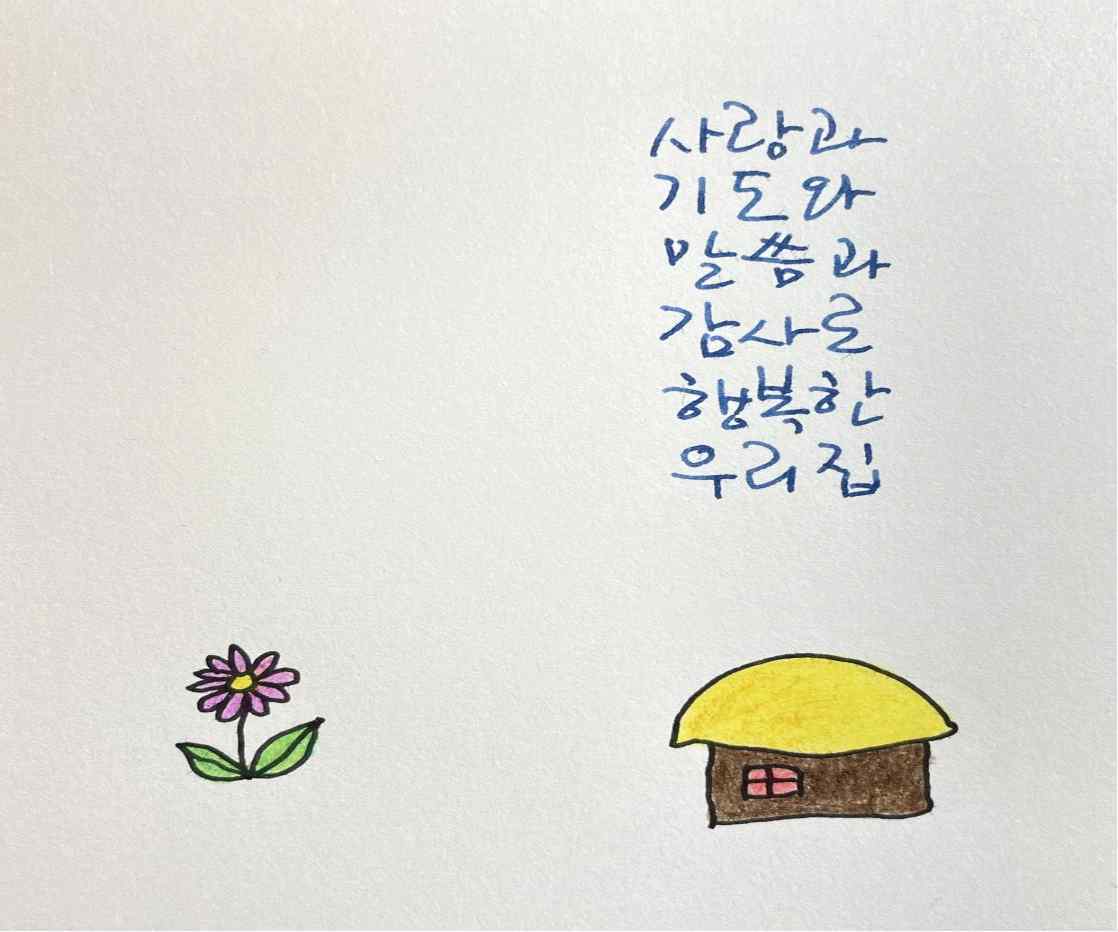 사랑과
기도와
말씀과
감사로
행복한
우리집